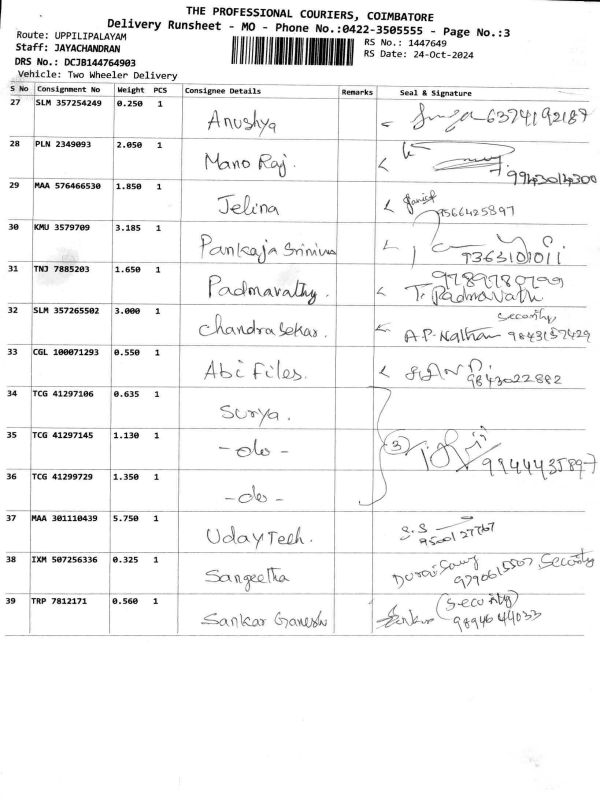 THE PROFESSIONAL COURIERS, COIMBATORE
Delivery Runsheet - MO - Phone No.:0422-3505555 - Page No.:3
Route: UPPILIPALAYAM
RS No.: 1447649
Staff: JAYACHANDRAN
RS Date: 24-Oct-2024
DRS No.: DCJB144764903
Vehicle: Two Wheeler Delivery
S No Consignment No Weight PCS Consignee Details Remarks Seal & Signature
27 SLM 357254249 0.250 1 Anushya 6374192187
28 PLN 2349093 2.050 1 Mano Raj. 9943014300
29 MAA 576466530 1.850 1 Jelina 9566425897
30 KMU 3579709 3.185 1 Pankaja Srinivas 7363101011
31 TNJ 7885203 1.650 1 Padmavathy. 9789780799 T. Padmavathi
32 SLM 357265502 3.000 1 Chandrasekar. Security A.P. Nathan 9843157429
33 CGL 100071293 0.550 1 Abi Files. 9843022882
34 TCG 41297106 0.635 1 Surya.
35 TCG 41297145 1.130 1 -do- 3 9944435897
36 TCG 41299729 1.350 1 -do-
37 MAA 301110439 5.750 1 Uday Tech. S.S 9500127767
38 IXM 507256336 0.325 1 Sangeetha Duraisamy 9790615507, Security
39 TRP 7812171 0.560 1 Sankar Ganesh (Security) 9894644033